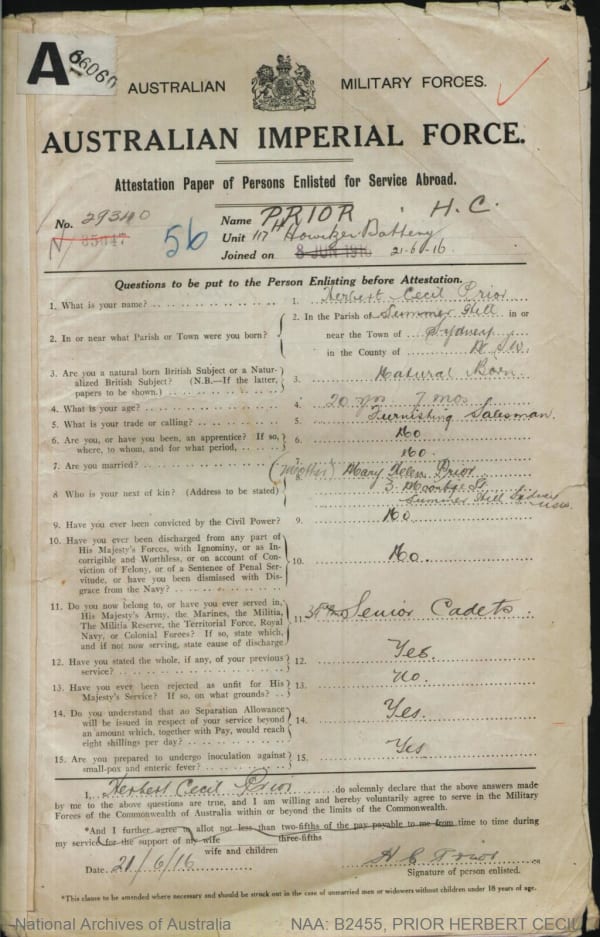 A 66060
AUSTRALIAN MILITARY FORCES.
AUSTRALIAN IMPERIAL FORCE.
Attestation Paper of Persons Enlisted for Service Abroad.
No. 29340 Name PRIOR H. C.
56 Unit 117th Howitzer Battery
Joined on 8 JUN 1916 21-6-16
Questions to be put to the Person Enlisting before Attestation.
1. What is your name? 1. Herbert Cecil Prior
2. In or near what Parish or Town were you born? 2. In the Parish of Summer Hill in or
near the Town of Sydney
in the County of N.S.W.
3. Are you a natural born British Subject or a Natur-
alized British Subject? (N.B.—If the latter, 3. Natural Born.
papers to be shown.)
4. What is your age? 4. 20 yrs 7 mos
5. What is your trade or calling? 5. Furnishing Salesman.
6. Are you, or have you been, an apprentice? If so, 6. No
where, to whom, and for what period,
7. Are you married? 7. No.
8 Who is your next of kin? (Address to be stated) 8. (Mother) Mary Helen Prior
3. St.
Summer Hill Sydney
NSW
9. Have you ever been convicted by the Civil Power? 9. No
10. Have you ever been discharged from any part of
His Majesty's Forces, with Ignominy, or as In-
corrigible and Worthless, or on account of Con-
viction of Felony, or of a Sentence of Penal Ser- 10. No.
vitude, or have you been Dismissed with Dis-
grace from the Navy?
11. Do you now belong to, or have you ever served in,
His Majesty's Army, the Marines, the Militia, 11. Senior Cadets.
The Militia Reserve, the Territorial Force, Royal
Navy, or Colonial Forces? If so, state which,
and if not now serving, state cause of discharge
12. Have you stated the whole, if any, of your previous 12. Yes.
service?
13. Have you ever been rejected as unfit for His 13. No.
Majesty's Service? If so, on what grounds?
14. Do you understand that no Separation Allowance
will be issued in respect of your service beyond 14. Yes.
an amount which, together with Pay, would reach
eight shillings per day?
15. Are you prepared to undergo inoculation against 15. Yes
small-pox and enteric fever?
I, Herbert Cecil Prior do solemnly declare that the above answers made
by me to the above questions are true, and I am willing and hereby voluntarily agree to serve in the Military
Forces of the Commonwealth of Australia within or beyond the limits of the Commonwealth.
*And I further agree to allot not less than two-fifths of the pay payable to me from time to time during
three-fifths
my service for the support of my wife
wife and children
Date. 21/6/16 H C Prior
Signature of person enlisted.
*This clause to be amended where necessary and should be struck out in the case of unmarried men or widowers without children under 18 years of age.
National Archives of Australia NAA: B2455, PRIOR HERBERT CECIL